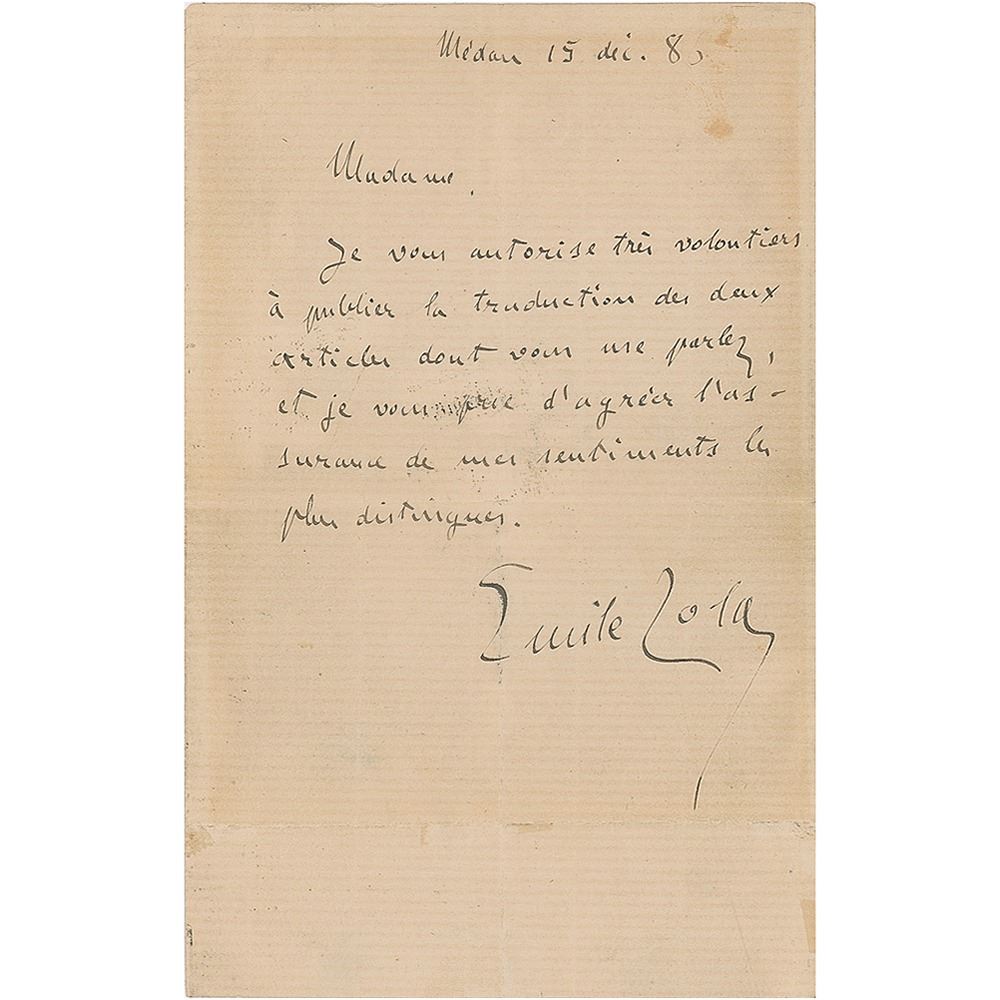 Médan 15 déc. 85
Madame,
Je vous autorise très volontiers
à publier la traduction des deux
articles dont vous me parlez,
et je vous prie d'agréer l'as-
surance de mes sentiments les
plus distingués.
Emile Zola